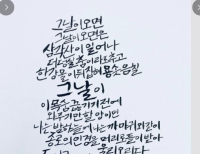 그날이 오면
그날이 오면은
삼각산이 일어나
더덩실 춤이라도 추고
한강물이 뒤집혀 용솟음칠
그날이
이 목숨 끊기기 전에
와주기만 할 양이면
나는 밤하늘에 나는 까마귀와 같이
종로의 인경을 머리로 들이받아
울리오리다